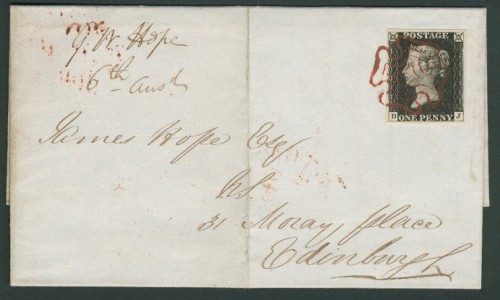 J. W. Hope
6th
POSTAGE
D J
ONE PENNY
James Hope Esq
W.S.
31 Moray place
Edinburgh